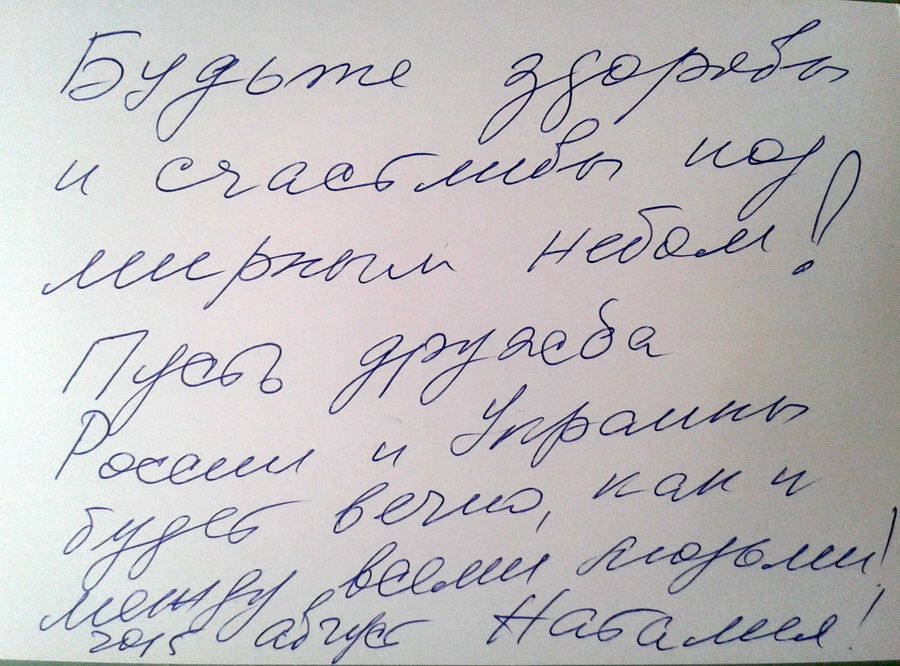 Будьте здоровы
и счастливы под
мирным небом!
Пусть дружба
России и Украины
будет вечно, как и
между всеми людьми!
2015 август Наталия!